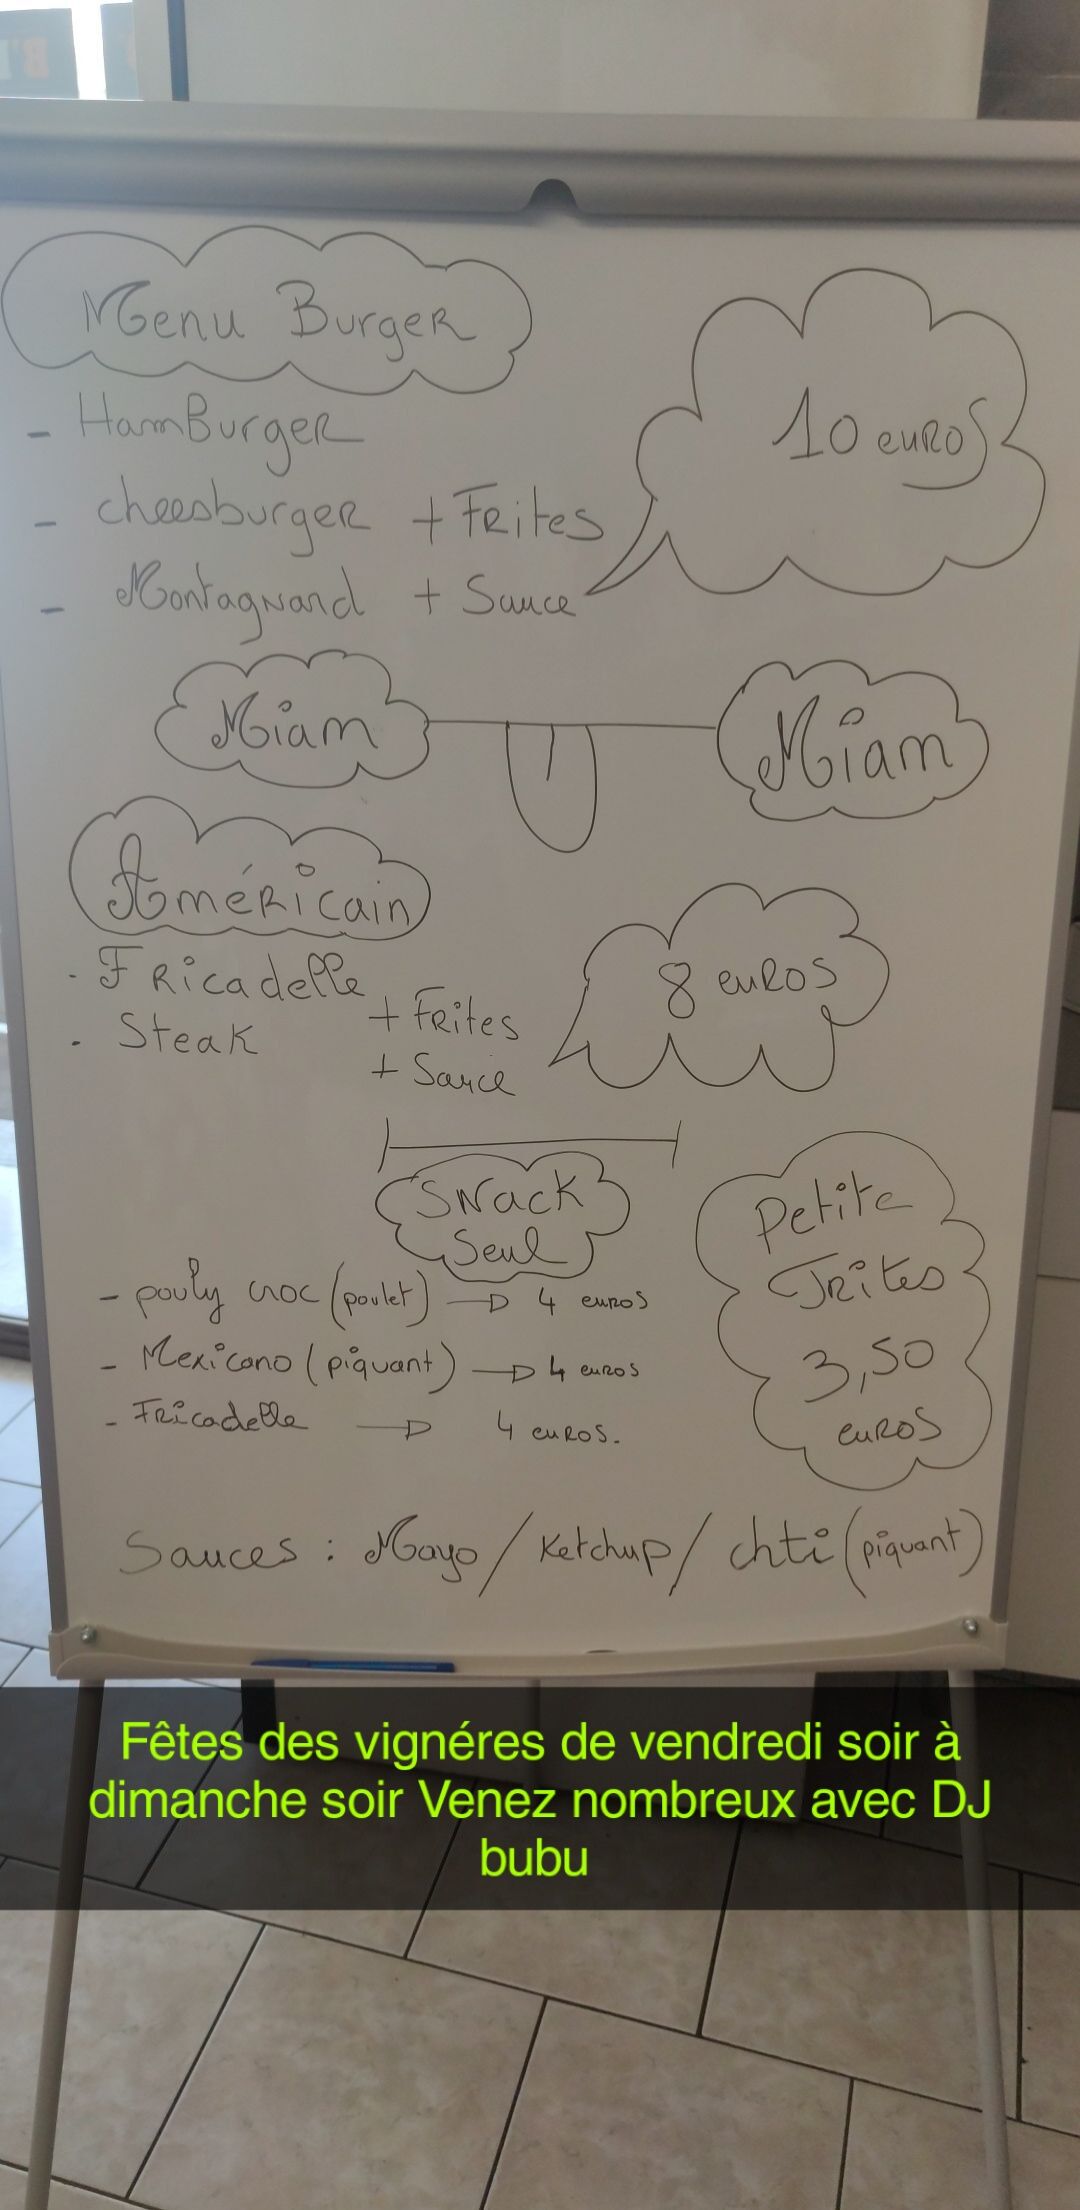 Menu Burger
10 euros
- HamBurger
- cheesburger + Frites
- Montagnard + Sauce
Miam
Miam
Américain
. Fricadelle
. Steak
+ Frites
+ Sauce
8 euros
Snack
Seul
- pouly croc (poulet) → 4 euros
- Mexicano (piquant) → 4 euros
- Fricadelle → 4 euros.
Petite
Frites
3,50
euros
Sauces : Mayo / Ketchup / chti (piquant)
Fêtes des vignéres de vendredi soir à
dimanche soir Venez nombreux avec DJ
bubu